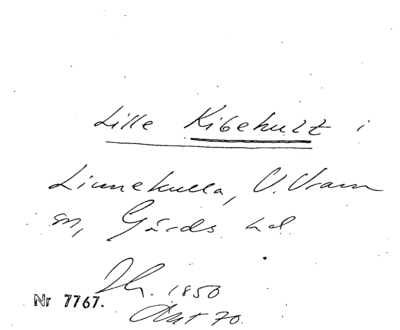 Lille Kibehult i
Linnekulla, V. Vram
sn, Gärds hd.
Th. 1850
Nr 7767.
Aut 70.